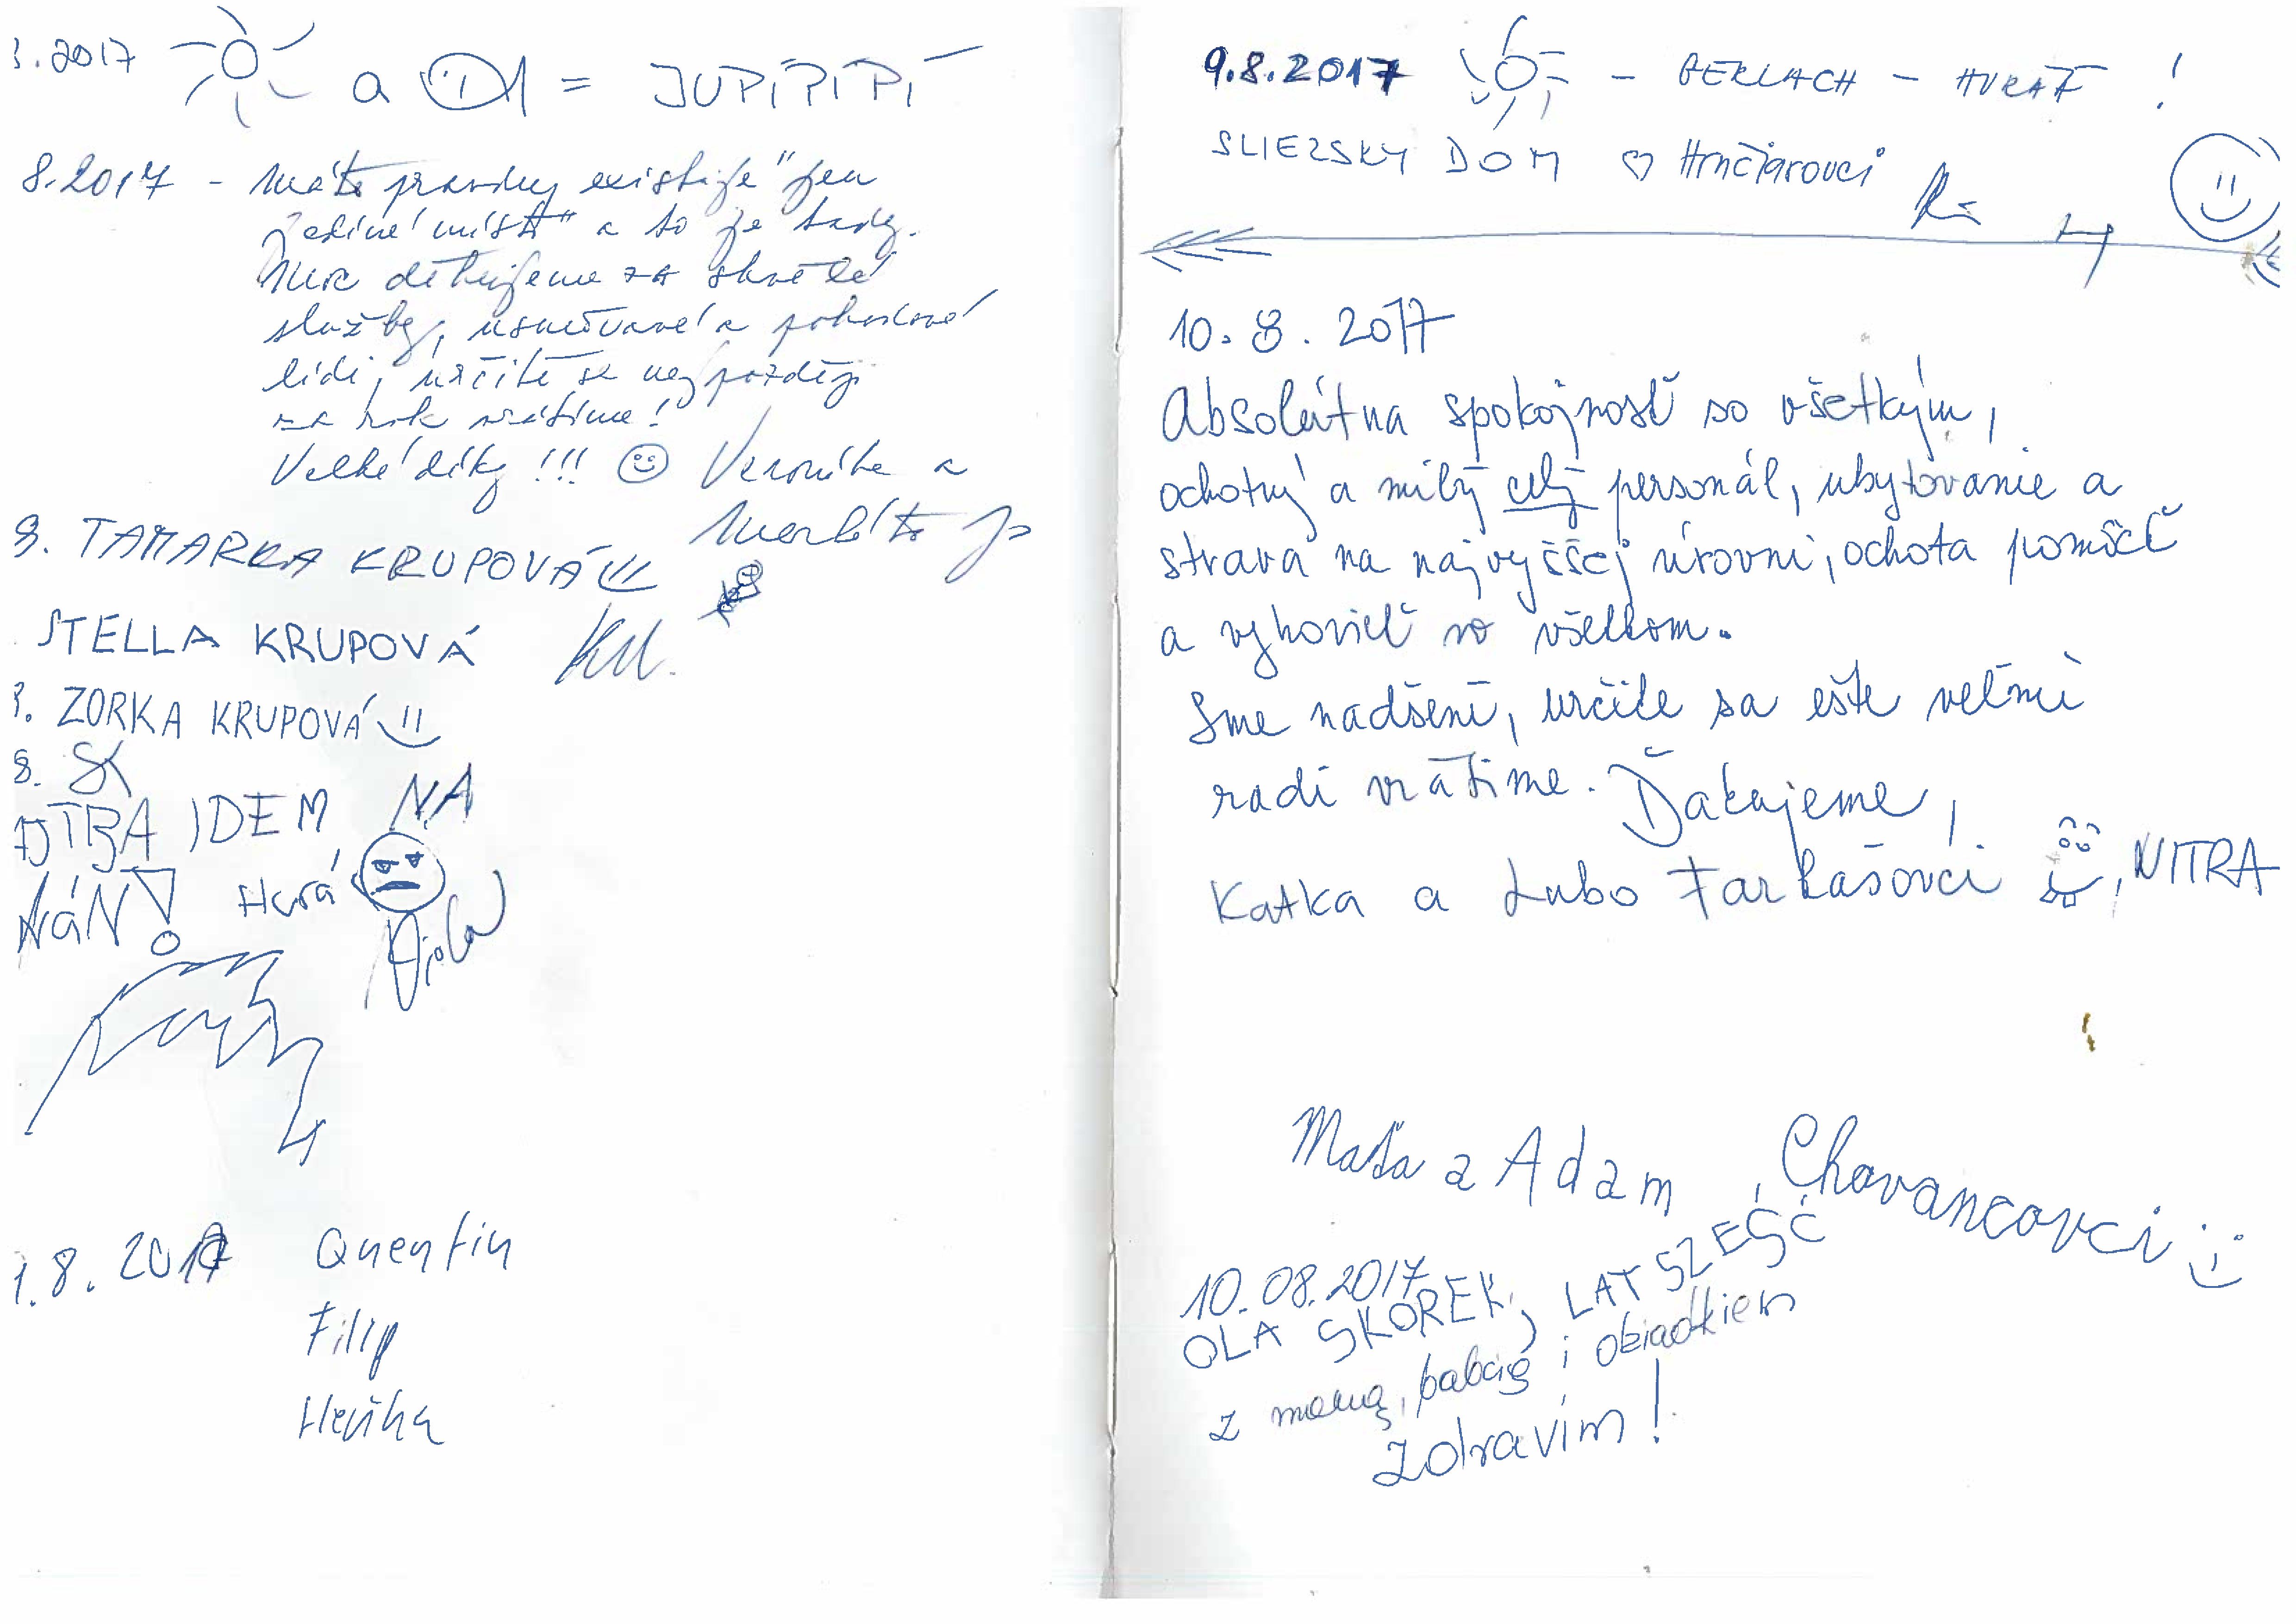 .2017 a = JUPÍPÍPÍ
8.2017 - existuje "jen
jediné místo" a to je tady.
Moc děkujeme za skvělé
služby, usměvavé a pohodové
lidi, určitě se nejpozději
za rok vrátíme!
Velké díky !!! Veronika a
Markéta
8. TAMARKA KRUPOVÁ
STELLA KRUPOVÁ
ZORKA KRUPOVÁ
8.
IDEM NA
Hurá
1.8.2017 Quentin
Filip
9.8.2017 - GERLACH - HURÁ !
SLIEZSKY DOM ♡ Hrnčiarovci
10.8.2017
Absolútna spokojnosť so všetkým,
ochotný a milý celý personál, ubytovanie a
strava na najvyššej úrovni, ochota pomôcť
a vyhovieť vo všetkom.
Sme nadšení, určite sa ešte veľmi
radi vrátime. Ďakujeme,
Katka a Ľubo Farkašovci, NITRA
Maťa a Adam Chovancovci
10.08.2017
OLA SKOREK, LAT SZEŚĆ
z mamą, babcią i dziadkiem
Zdravím!